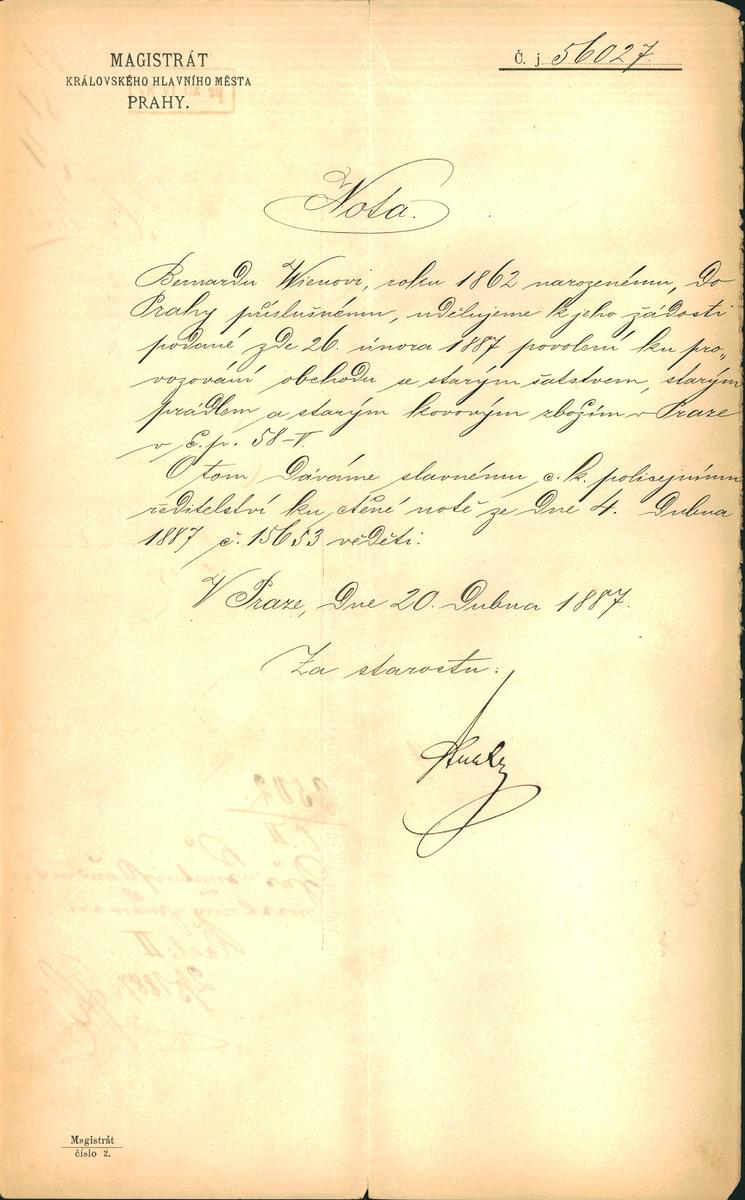 MAGISTRÁT
KRÁLOVSKÉHO HLAVNÍHO MĚSTA
PRAHY.
Č. j. 56027.
Nota.
Bernardu Wienovi, roku 1862 narozenému, do
Prahy příslušnému, udělujeme k jeho žádosti
podané zde 26. února 1887 povolení ku pro„
vozování obchodu se starým šatstvem, starým
prádlem a starým kovovým zbožím v Praze
v č. p. 58-V.
O tom dáváme slavnému c. k. policejnímu
ředitelství ku ctěné notě ze dne 4. dubna
1887 č. 15653 věděti.
V Praze, dne 20. dubna 1887.
Za starostu:
Magistrát
číslo 2.